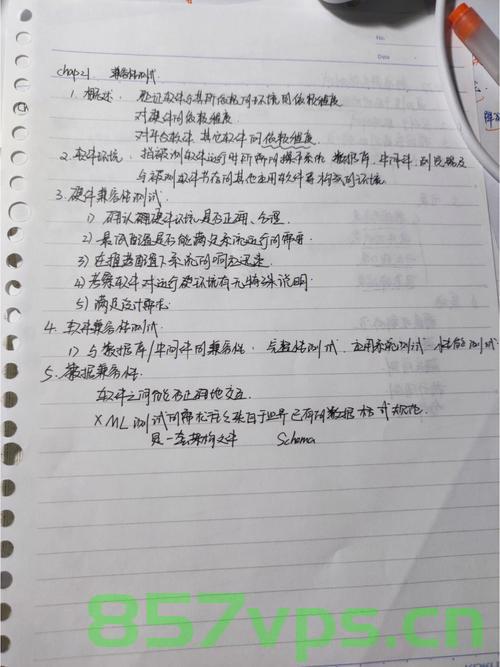 No.
Date
chap21 兼容性测试.
1. 概述: 验证软件与其所依赖的环境的依赖程度
对硬件的依赖程度.
对平台软件、其他软件的依赖程度.
2. 软件环境: 指被测软件运行时所需的操作系统、数据库、中间件、浏览器及
与被测软件共存的其他应用软件等构成的环境.
3. 硬件兼容性测试:
1) 确认硬件环境是否正确、合理.
2) 最低配置是否能满足系统运行的需要
3) 在推荐配置下系统的响应迅速.
4) 考察软件对运行硬环境有无特殊说明.
5) 满足设计需求
4. 软件兼容性测试:
1) 与数据库/中间件的兼容性: 完整性测试、应用系统测试、性能测试
5. 数据兼容性.
软件之间能否正确地交互.
XML测试的需求往往来自于业界已有的数据格式规范.
是一套架构文件 Schema
857vps.cn